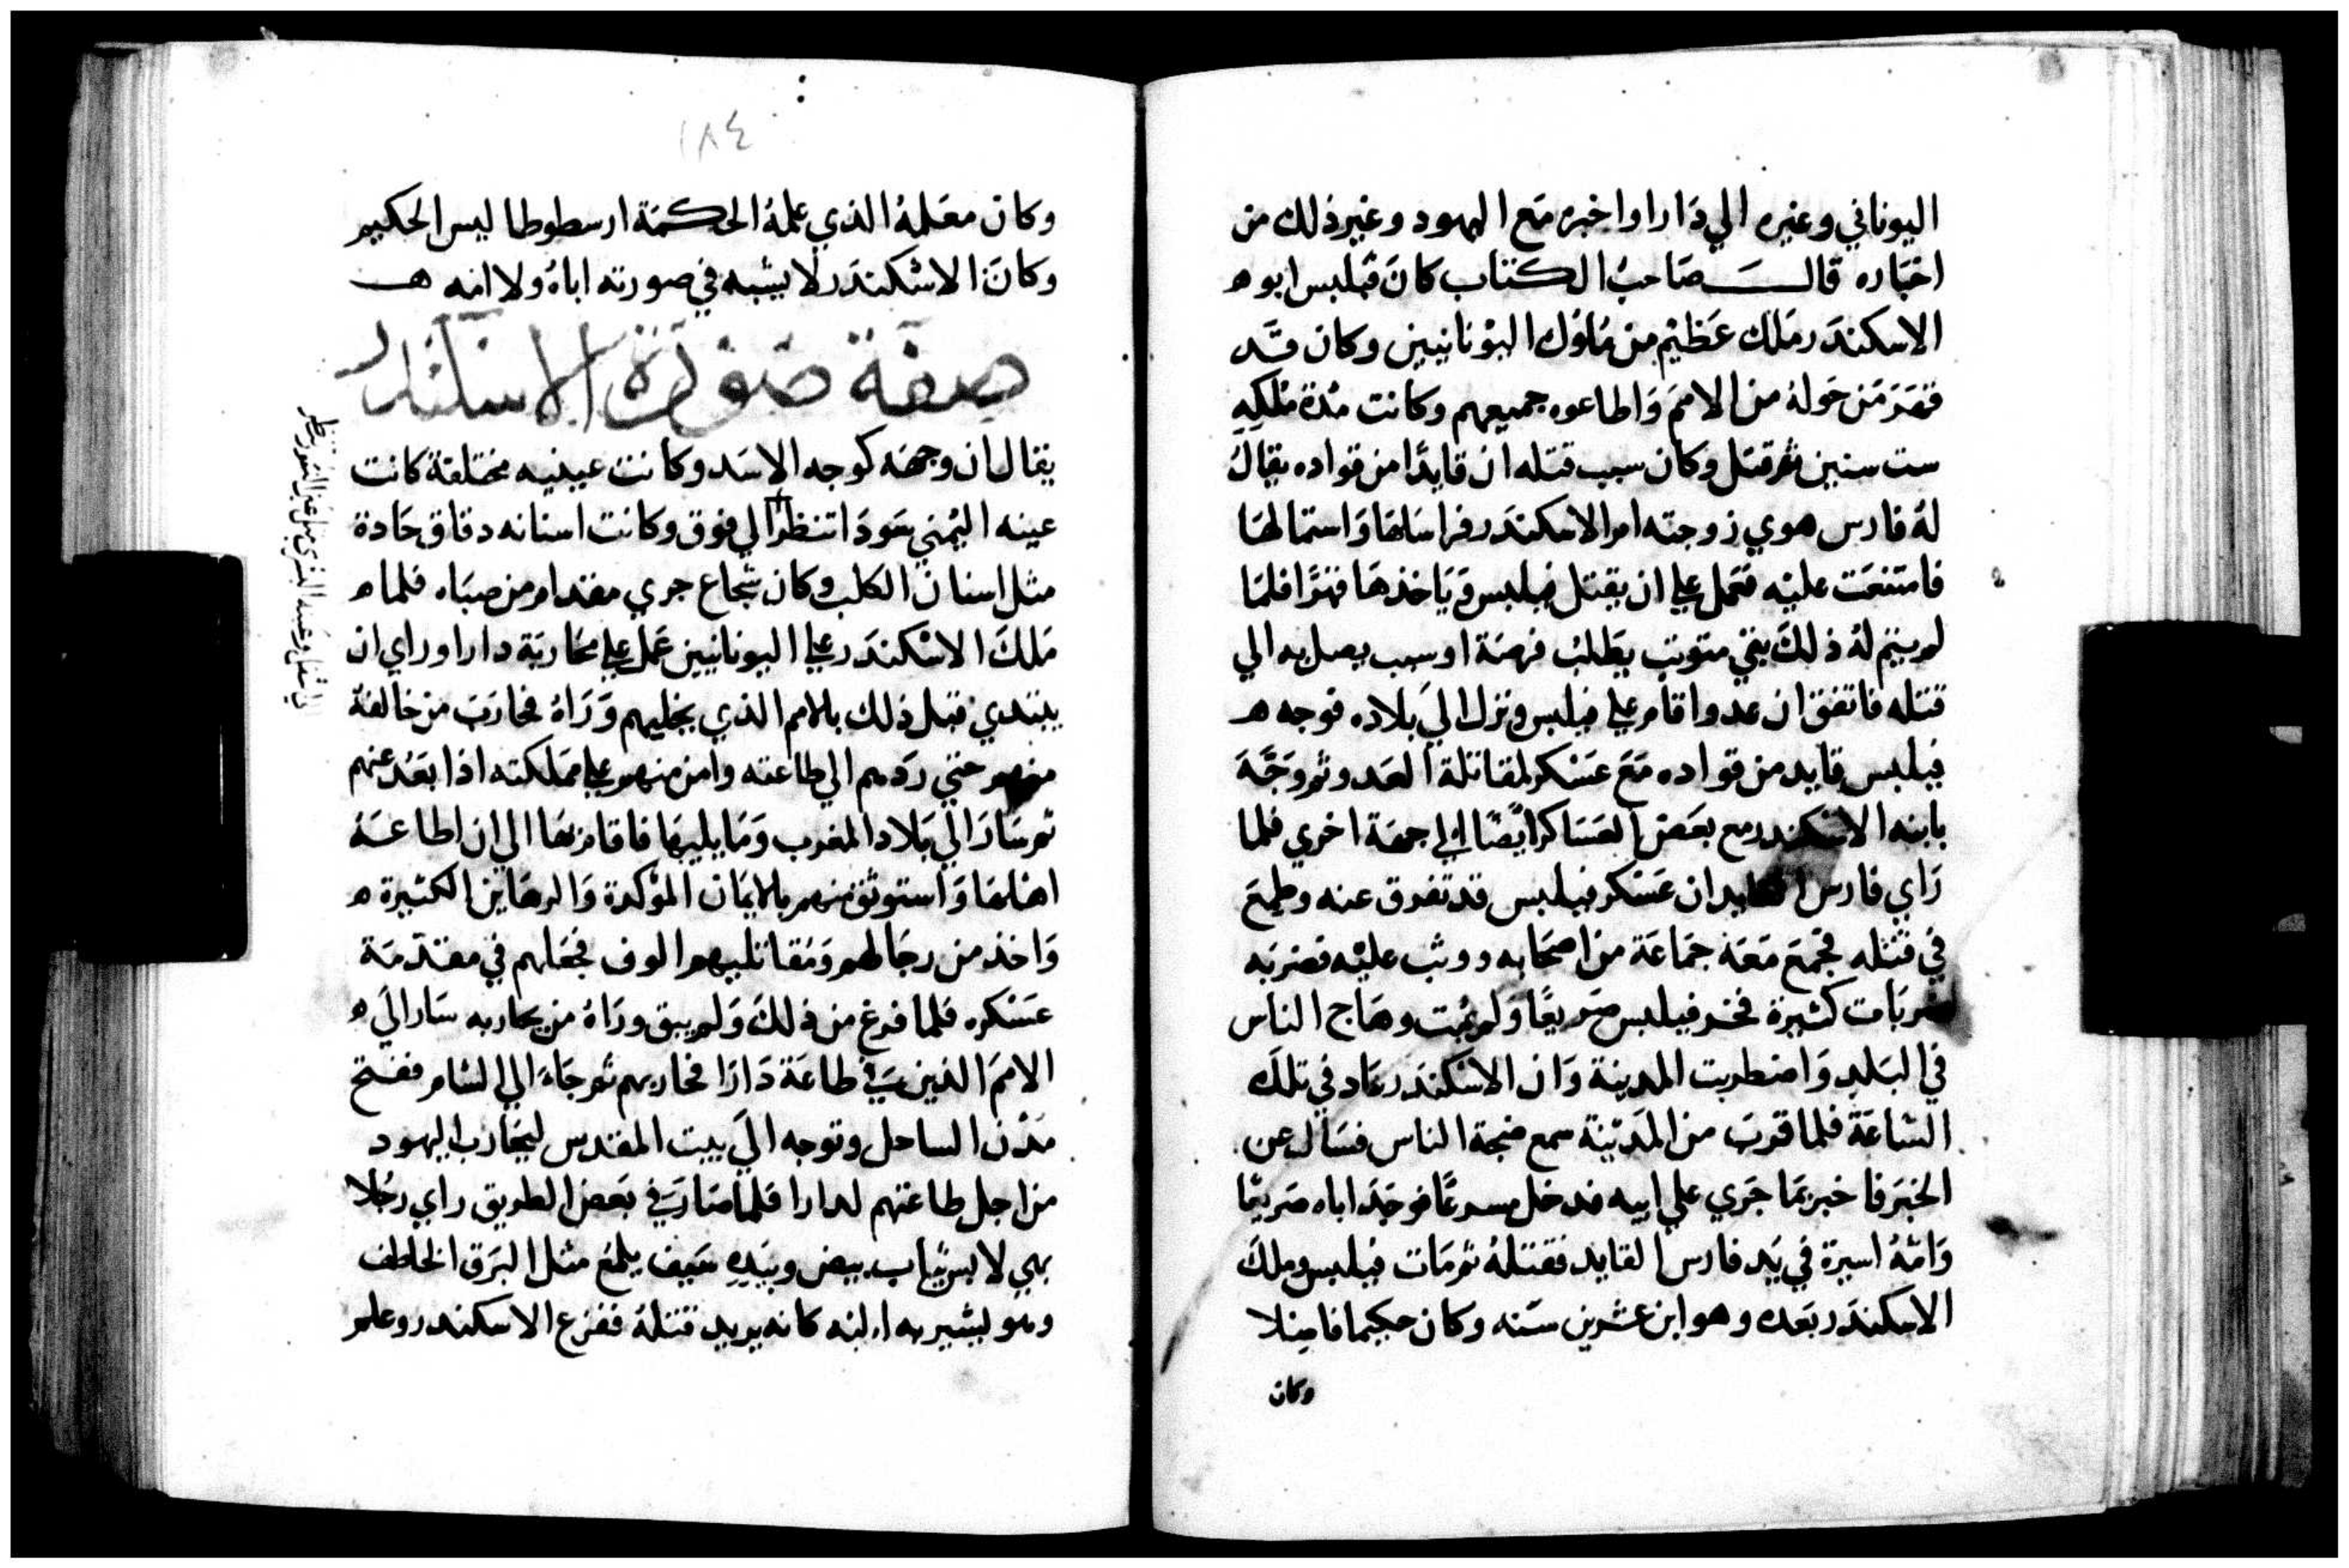 اليوناني وغيره الي دارا واخبره مع اليهود وغير ذلك من
اخباره قال صاحب الكتاب كان فيلبس ابو ه
الاسكندر ملك عظيم من ملوك اليونانيين وكان قد
قهر من حوله من الامم واطاعوه جميعهم وكانت مدة ملكه
ست سنين ثم قتل وكان سبب قتله ان قايدا من قواده يقال
له فارس هوي زوجته ام الاسكندر فراسلها واستمالها
فامتنعت عليه فعمل علي ان يقتل فيلبس وياخذها قهرا فلما
لم يتم له ذلك بقي متوثب يطلب فرصة او سبب يصل به الي
قتله فاتفق ان عدوا قام علي فيلبس ونزل الي بلاده فوجه ه
فيلبس قايد من قواده مع عسكر لمقاتلة العدو ثم وجه
بابنه الاسكندر مع بعض العساكر ايضا الي جهة اخري فلما
راي فارس القايد ان عسكر فيلبس قد تفرق عنه وطمع
في قتله فجمع معه جماعة من اصحابه ووثب عليه فضربه
ضربات كثيرة فخر فيلبس صريعا ولم يمت وهاج الناس
في البلد واضطربت المدينة وان الاسكندر عاد في تلك
الساعة فلما قرب من المدينة سمع ضجة الناس فسال عن
الخبر فاخبر بما جري علي ابيه فدخل مسرعا فوجد اباه صريعا
وامه اسيرة في يد فارس القايد فقتله ثم مات فيلبس وملك
الاسكندر بعده وهو ابن عشرين سنه وكان حكيما فاضلا
وكان
١٨٤
وكان معلمه الذي علمه الحكمة ارسطوطاليس الحكيم
وكان الاسكندر لا يشبه في صورته اباه ولا امه ه
صفة صورة الاسكندر
يقال ان وجهه كوجه الاسد وكانت عينيه مختلفة كانت
عينه اليمني سودا تنظر الي فوق وكانت اسنانه دقاق حادة
مثل اسنان الكلب وكان شجاع جري مقدام من صباه فلما ه
ملك الاسكندر علي اليونانيين عمل علي محاربة دارا وراي ان
يبتدي قبل ذلك بالامم الذي يخليهم وراه فحارب من خالفه
منهم حتي ردهم الي طاعته وامن منهم علي مملكته اذا بعد عنهم
ثم سار الي بلاد المغرب وما يليها فاقام بها الي ان اطاعه
اهلها واستوثق منهم بالايمان المؤكدة والرهاين الكثيرة ه
واخذ من رجالهم ومقاتليهم الوف فجعلهم في مقدمة
عسكره فلما فرغ من ذلك ولم يبق وراه من يحاربه سار الي ه
الامم الذين في طاعة دارا فحاربهم ثم جاء الي الشام ففتح
مدن الساحل وتوجه الي بيت المقدس ليحارب اليهود
من اجل طاعتهم لدارا فلما صار في بعض الطريق راي رجلا
بهي لابس ثياب بيض وبيده سيف يلمع مثل البرق الخاطف
وهو يشير به اليه كانه يريد قتله ففزع الاسكندر وعلم